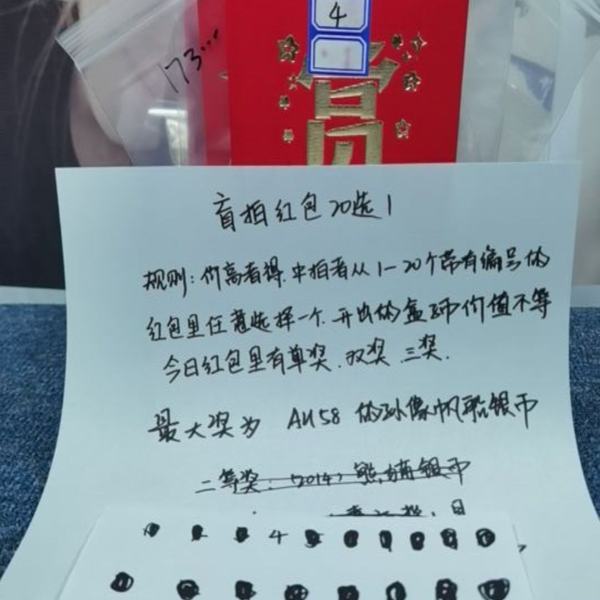 4
173...
盲拍红包20选1
规则:价高者得.中拍者从1-20个带有编号的
红包里任意选择一个.开出的盒币价值不等
今日红包里有单奖.双奖.三奖.
最大奖为 AU58 的孙像帆船银币
二等奖:2014,熊猫银币
4